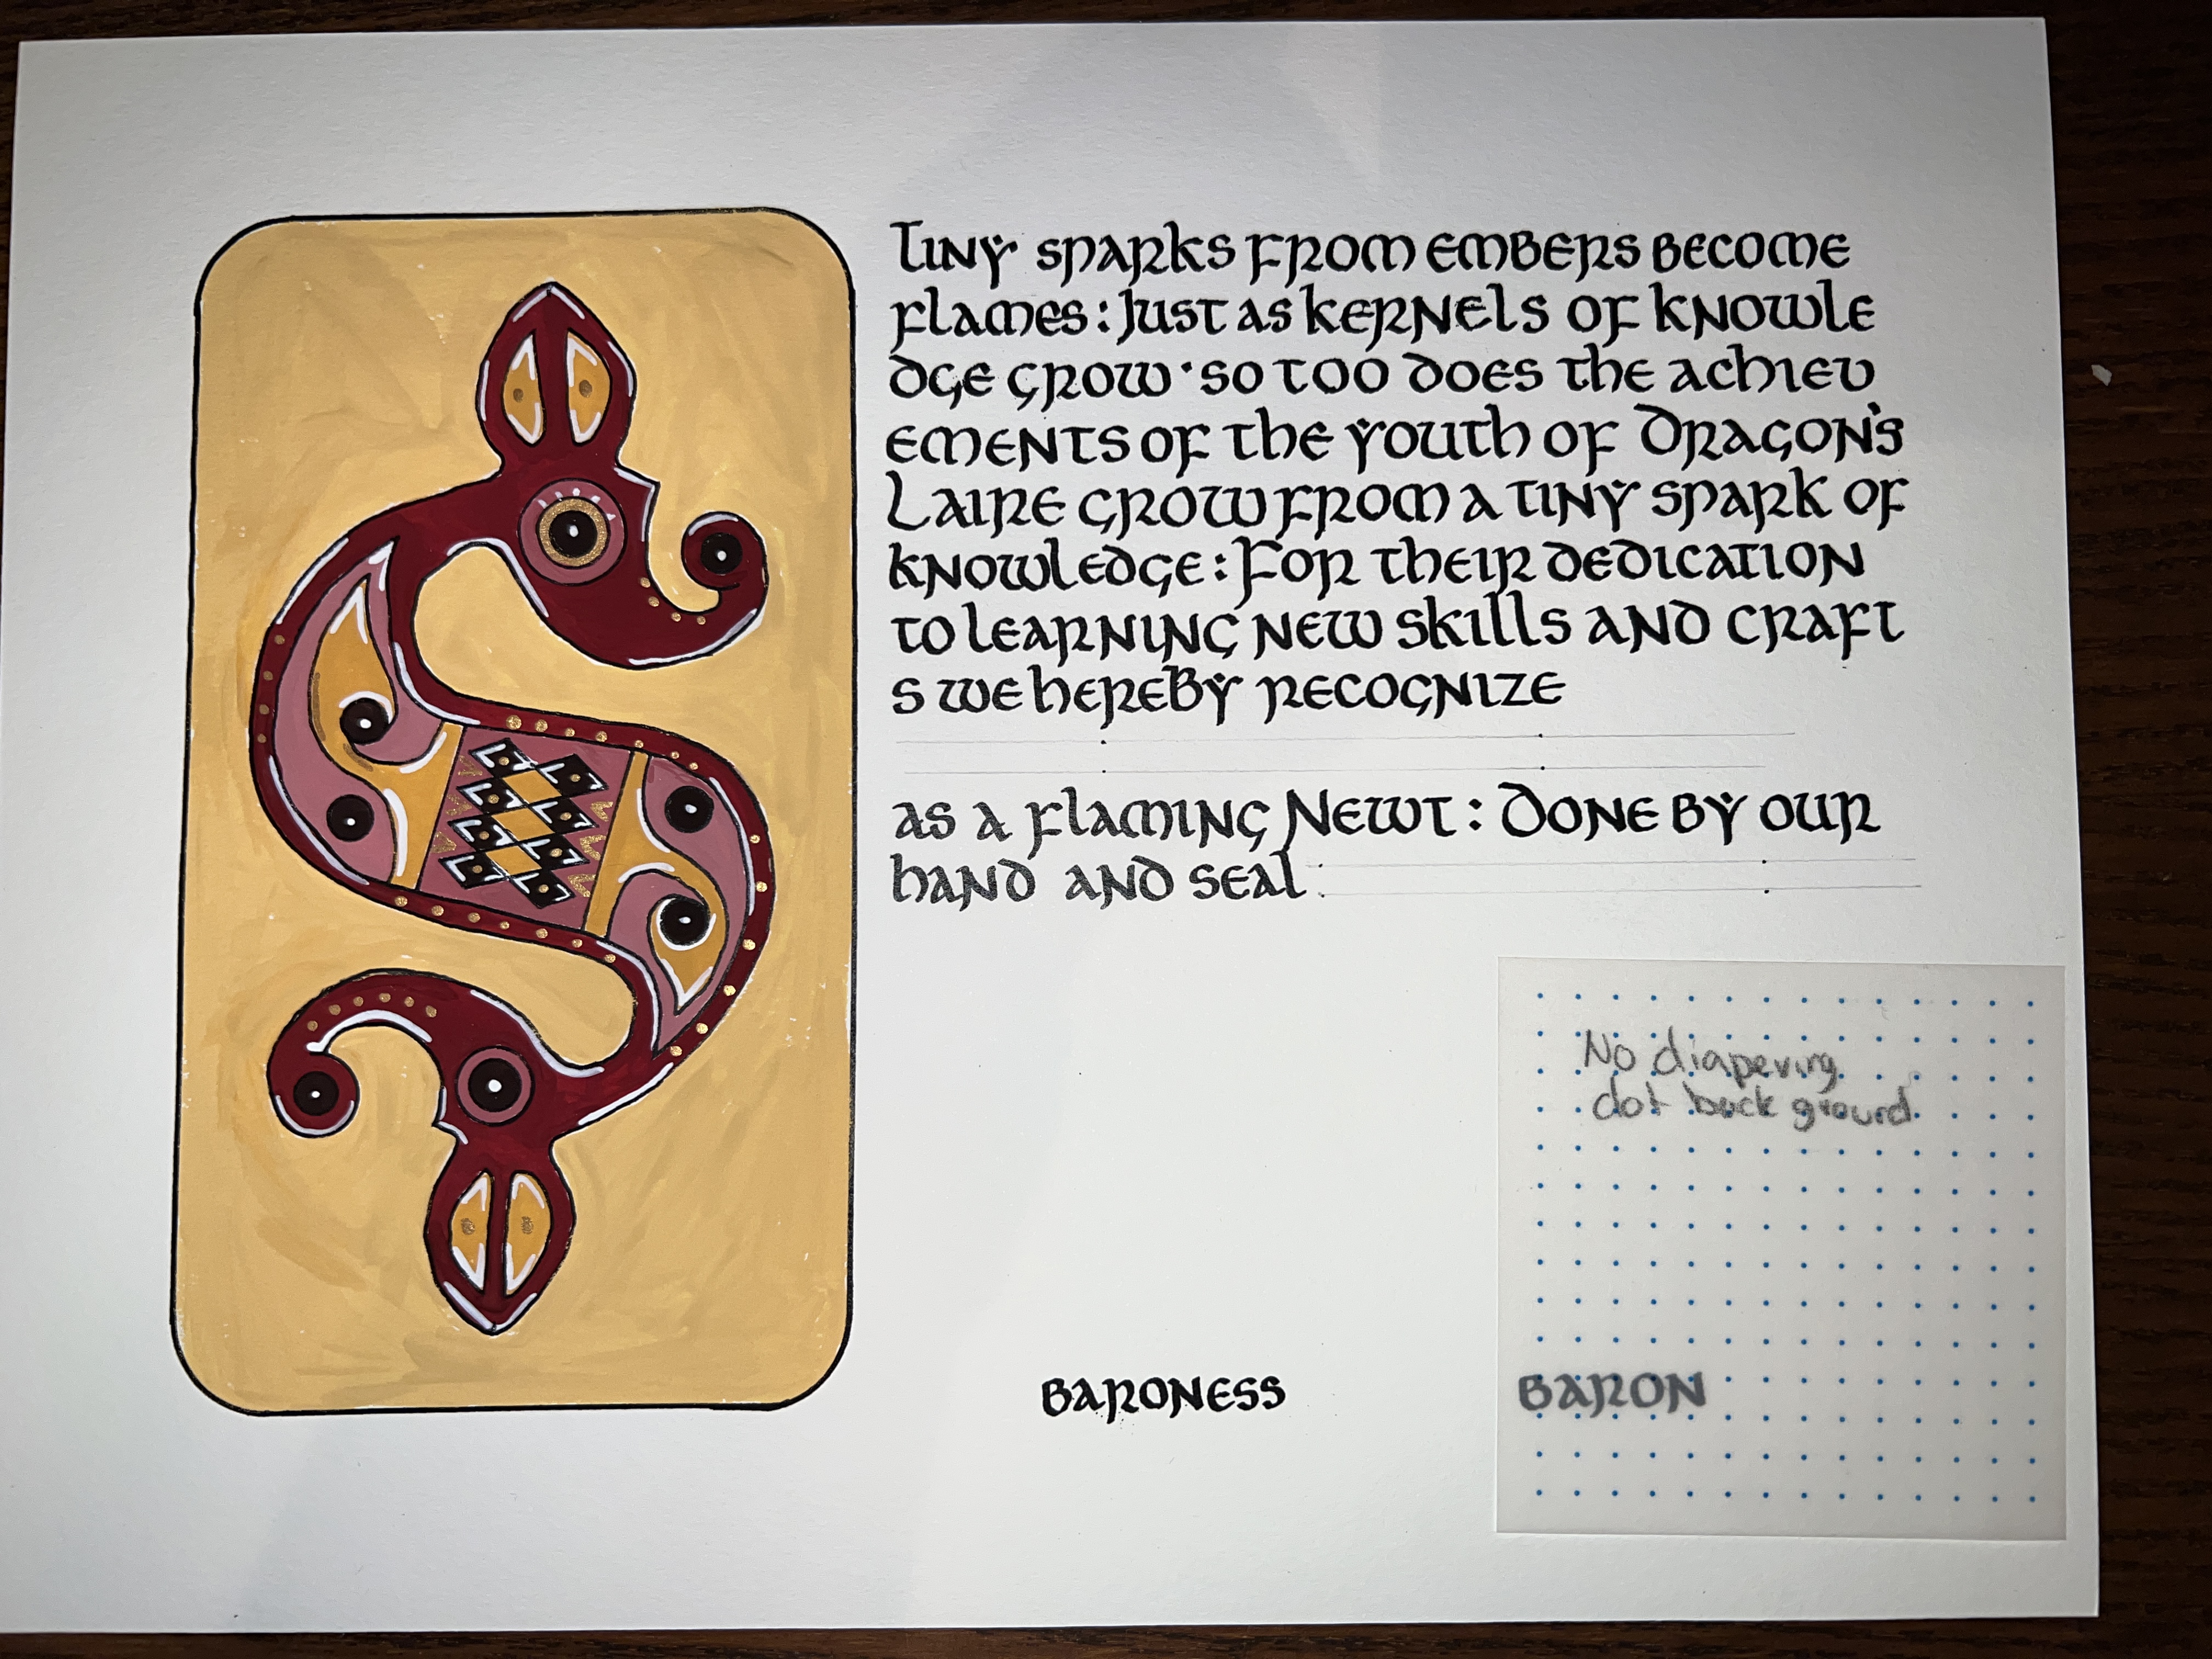 Tiny sparks from embers become
flames : Just as kernels of knowle
dge grow · so too does the achiev
ements of the youth of Dragon's
Laire grow from a tiny spark of
knowledge : For their dedication
to learning new skills and craft
s we hereby recognize
as a flaming Newt : Done by our
hand and seal :
No diapering
dot back ground
Baroness
Baron